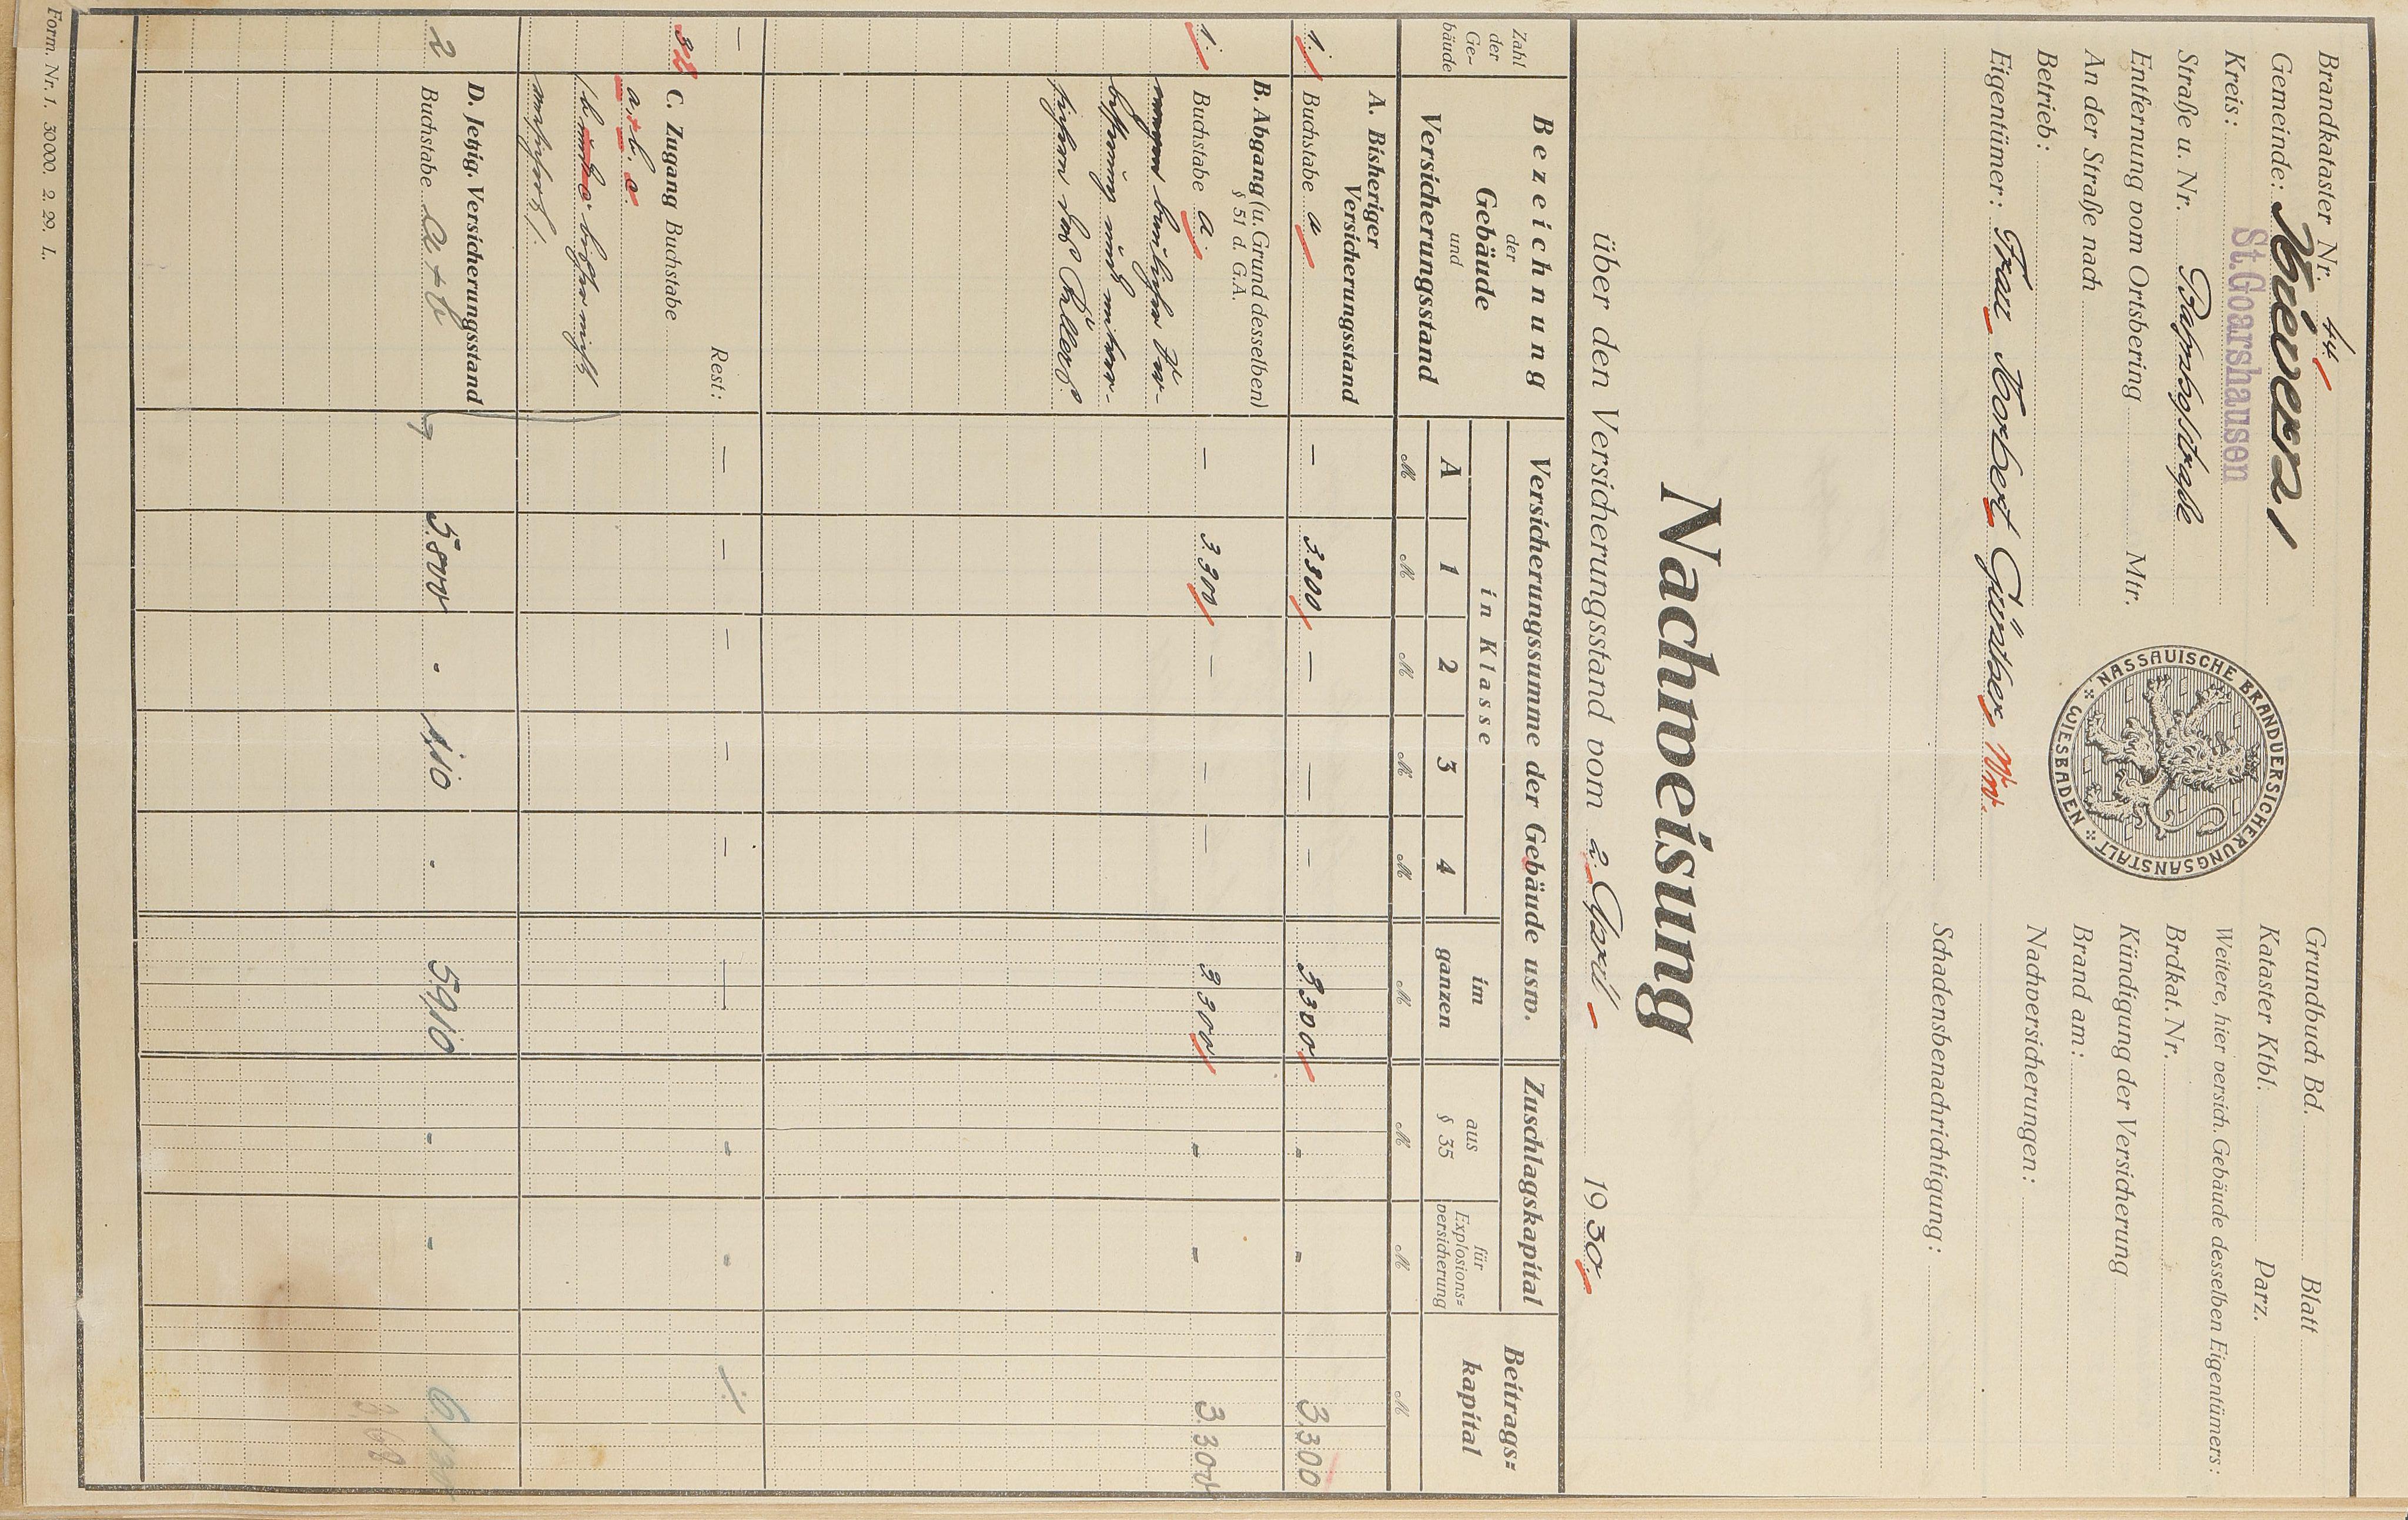 Brandkataster Nr. 44
Gemeinde: Nievern
Kreis: St. Goarshausen
Straße u. Nr. Bahnhofstraße
Entfernung vom Ortsbering Mtr.
An der Straße nach
Betrieb:
Eigentümer: Frau Norbert Günther, Ww.
NASSAUISCHE BRANDVERSICHERUNGSANSTALT
WIESBADEN
Grundbuch Bd. Blatt
Kataster Ktbl. Parz.
Weitere, hier versich. Gebäude desselben Eigentümers:
Brdkat. Nr.
Kündigung der Versicherung
Brand am:
Nachversicherungen:
Schadensbenachrichtigung:
Nachweisung
über den Versicherungsstand vom 2. April 1930.
Zahl der Ge-bäude
Bezeichnung der Gebäude und Versicherungsstand
Versicherungssumme der Gebäude usw.
in Klasse
A 1 2 3 4
im ganzen
Zuschlagskapital
aus § 35
für Explosions=versicherung
Beitrags=kapital
M M M M M M M M M
A. Bisheriger Versicherungsstand
1. Buchstabe a — 3300 — — — 3300 - - 3300
B. Abgang (u. Grund desselben)
§ 51 d. G.A.
1. Buchstabe a. — 3300 — — — 3300 - - 3300
wegen baulicher Ver-
besserung und mehrr-
Rest: — — — — — — - -
C. Zugang Buchstabe
a + b.
bisher nicht
versichert).
D. Jetzig. Versicherungsstand
2 Buchstabe a + b 5800 . 110 . 5910 - -
Form. Nr. 1. 30000. 2. 29. L.